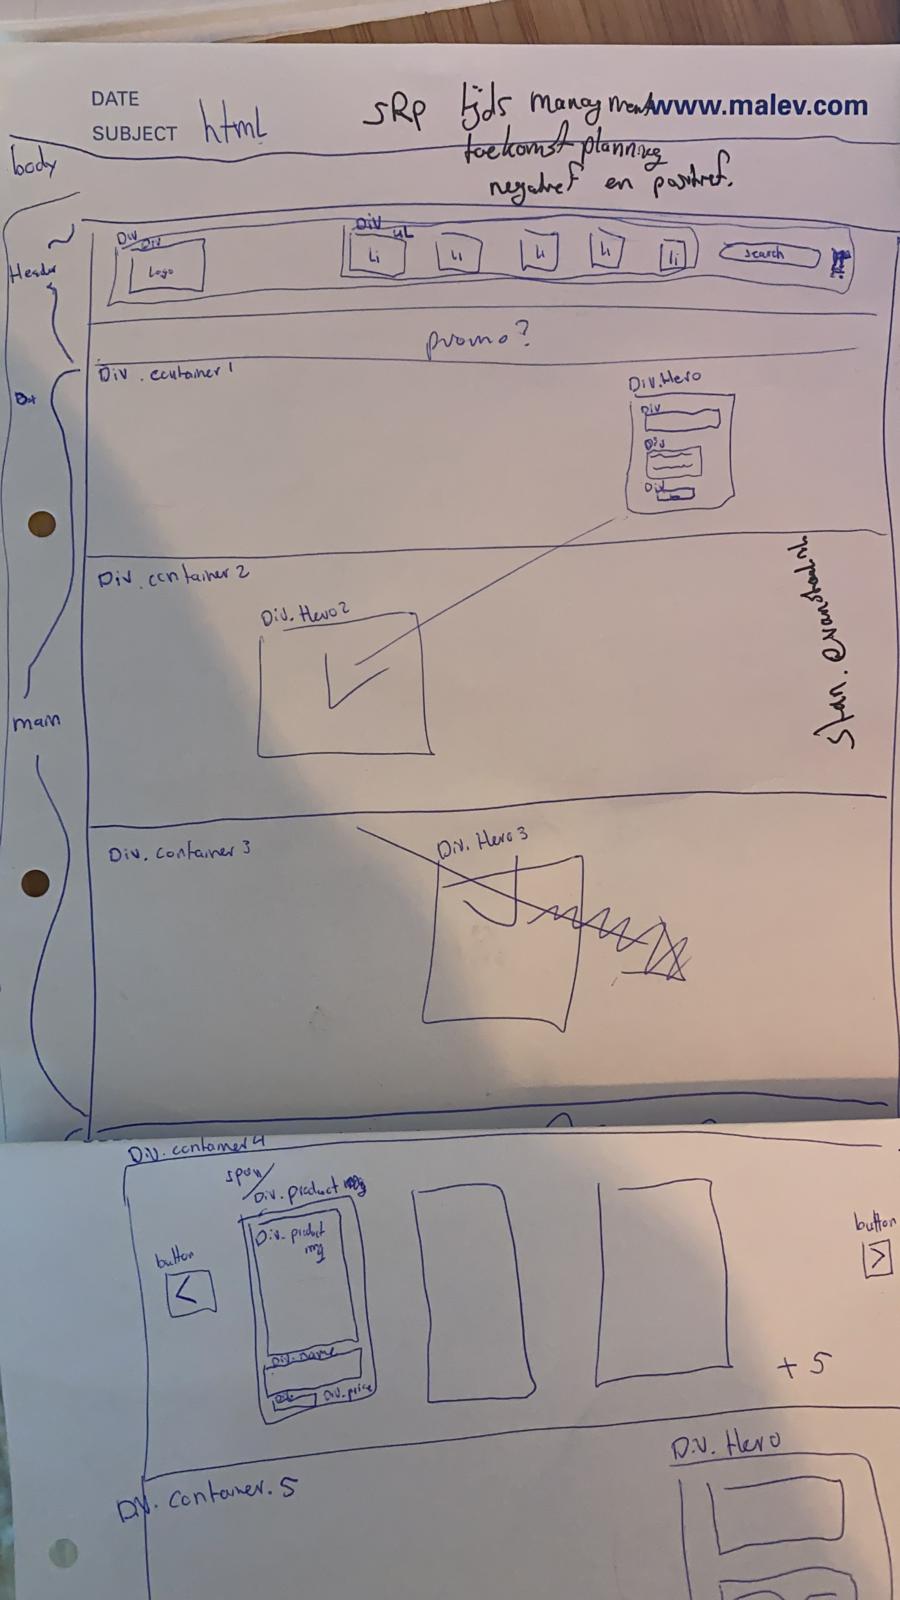 DATE
SUBJECT html
SRP tijds managment www.malev.com
toekomst planning
negatief en positief.
body
Header
Div
Div
Logo
Div
UL
Li
Li
Li
Li
li
search
promo?
Div. container 1
Div. Hero
Div
Div
Div
Div. container 2
Div. Hero2
Stan.
main
Div. container 3
Div. Hero 3
Div. container 4
span/
Div. product
Div. product
img
button
<
Div. name
Div. price
button
>
+ 5
Div. Hero
Div. container. 5